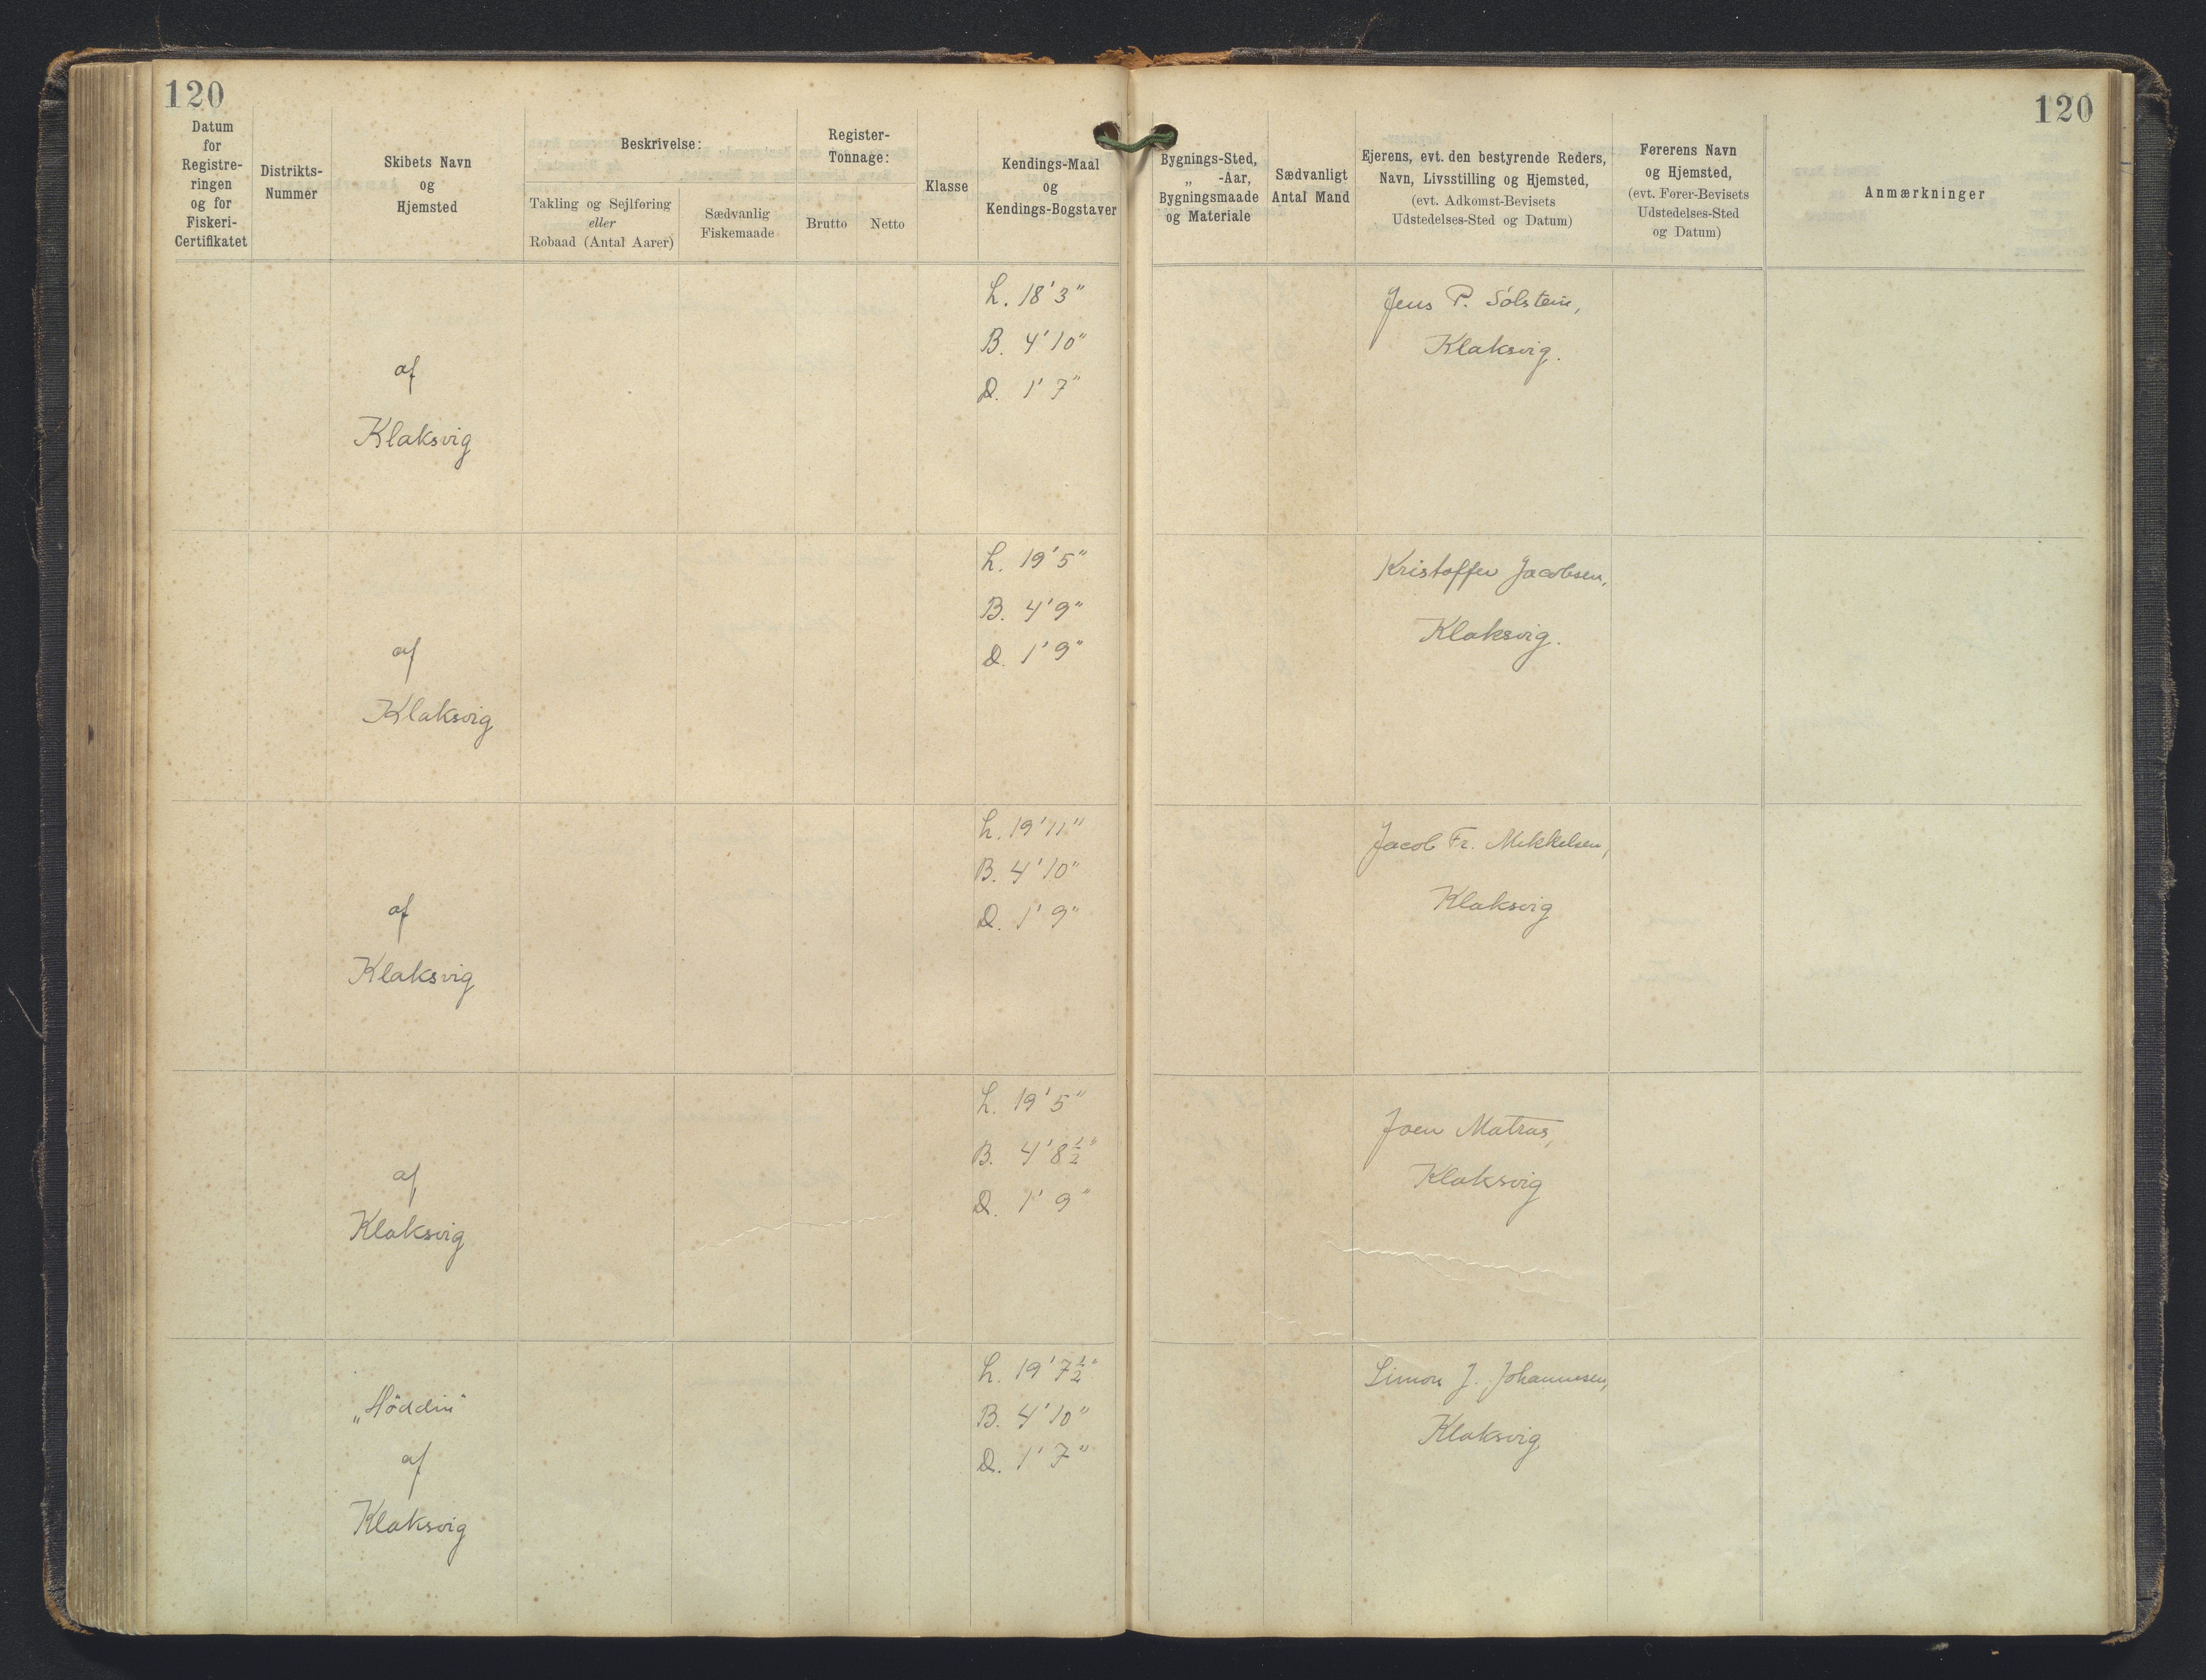 120
120
Datum
for
Registre-
ringen
og for
Fiskeri-
Certifikatet
Distrikts-
Nummer
Skibets Navn
og
Hjemsted
Beskrivelse:
Takling og Sejlføring
eller
Robaad (Antal Aarer)
Sædvanlig
Fiskemaade
Register-
Tonnage:
Brutto
Netto
Klasse
Kendings-Maal
og
Kendings-Bogstaver
Bygnings-Sted,
„ -Aar,
Bygningsmaade
og Materiale
Sædvanligt
Antal Mand
Ejerens, evt. den bestyrende Reders,
Navn, Livsstilling og Hjemsted,
(evt. Adkomst-Bevisets
Udstedelses-Sted og Datum)
Førerens Navn
og Hjemsted,
(evt. Fører-Bevisets
Udstedelses-Sted
og Datum)
Anmærkninger
af
Klaksvig
L. 18' 3"
B. 4' 10"
D. 1' 7"
Jens P. Sólstein,
Klaksvig.
af
Klaksvig
L. 19' 5"
B. 4' 9"
D. 1' 9"
Kristoffer Jacobsen,
Klaksvig.
af
Klaksvig
L. 19' 11"
B. 4' 10"
D. 1' 9"
Jacob Fr. Mikkelsen,
Klaksvig
af
Klaksvig
L. 19' 5"
B. 4' 8½"
D. 1' 9"
Joen Matras,
Klaksvig
„Høddin"
af
Klaksvig
L. 19' 7½"
B. 4' 10"
D. 1' 7"
Simon J. Johannesen,
Klaksvig